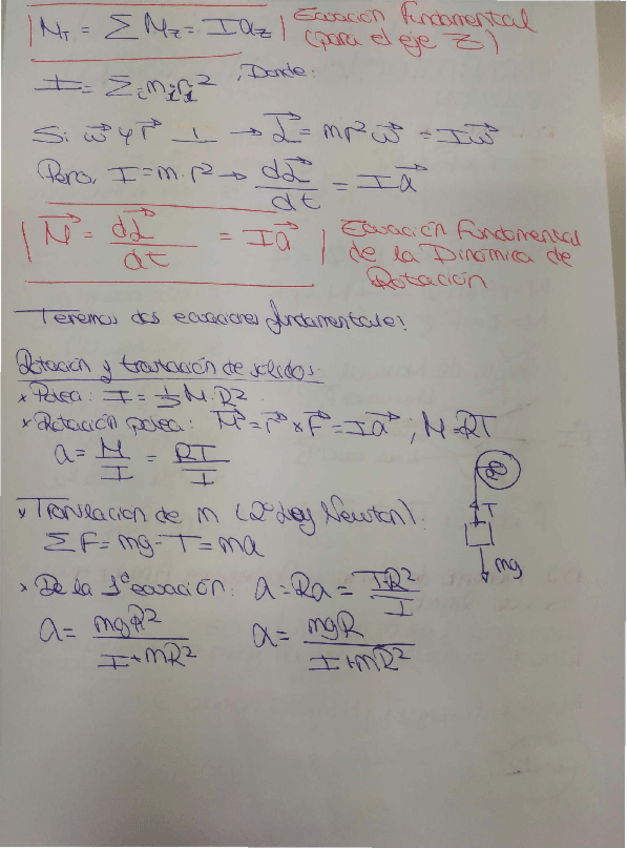 M_T = ΣM_z = I a_z | Ecuación Fundamental
(para el eje z)
I = Σ_i m_i r_i² , Donde:
Si ω⃗ y r⃗ ⊥ → L⃗ = mr²ω⃗ = Iω⃗
Pero, I = m·r² → dL⃗/dt = Ia⃗
M⃗ = dL⃗/dt = Ia⃗ | Ecuación Fundamental
de la Dinámica de
Rotación
Tenemos dos ecuaciones fundamentales:
Rotación y translación de sólidos:
* Polea: I = ½ M·R²
* Rotación polea: M⃗ = r⃗ x F⃗ = Ia⃗ ; M = RT
a = M/I = RT/I
* Translación de m (2ª Ley Newton).
ΣF = mg - T = ma
T
mg
* De la 1ª ecuación: a = Ra = T·R²/I
a = mgR²/(I + mR²) a = mgR/(I + mR²)